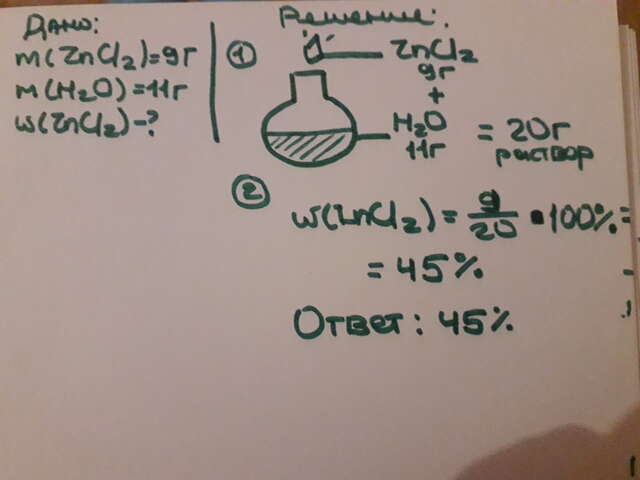 Дано:
m(ZnCl2)=9г
m(H2O)=11г
w(ZnCl2)-?
Решение:
1 ZnCl2
9г
+
H2O
11г
= 20г
раствор
2
w(ZnCl2)=9/20•100%=
=45%
Ответ: 45%